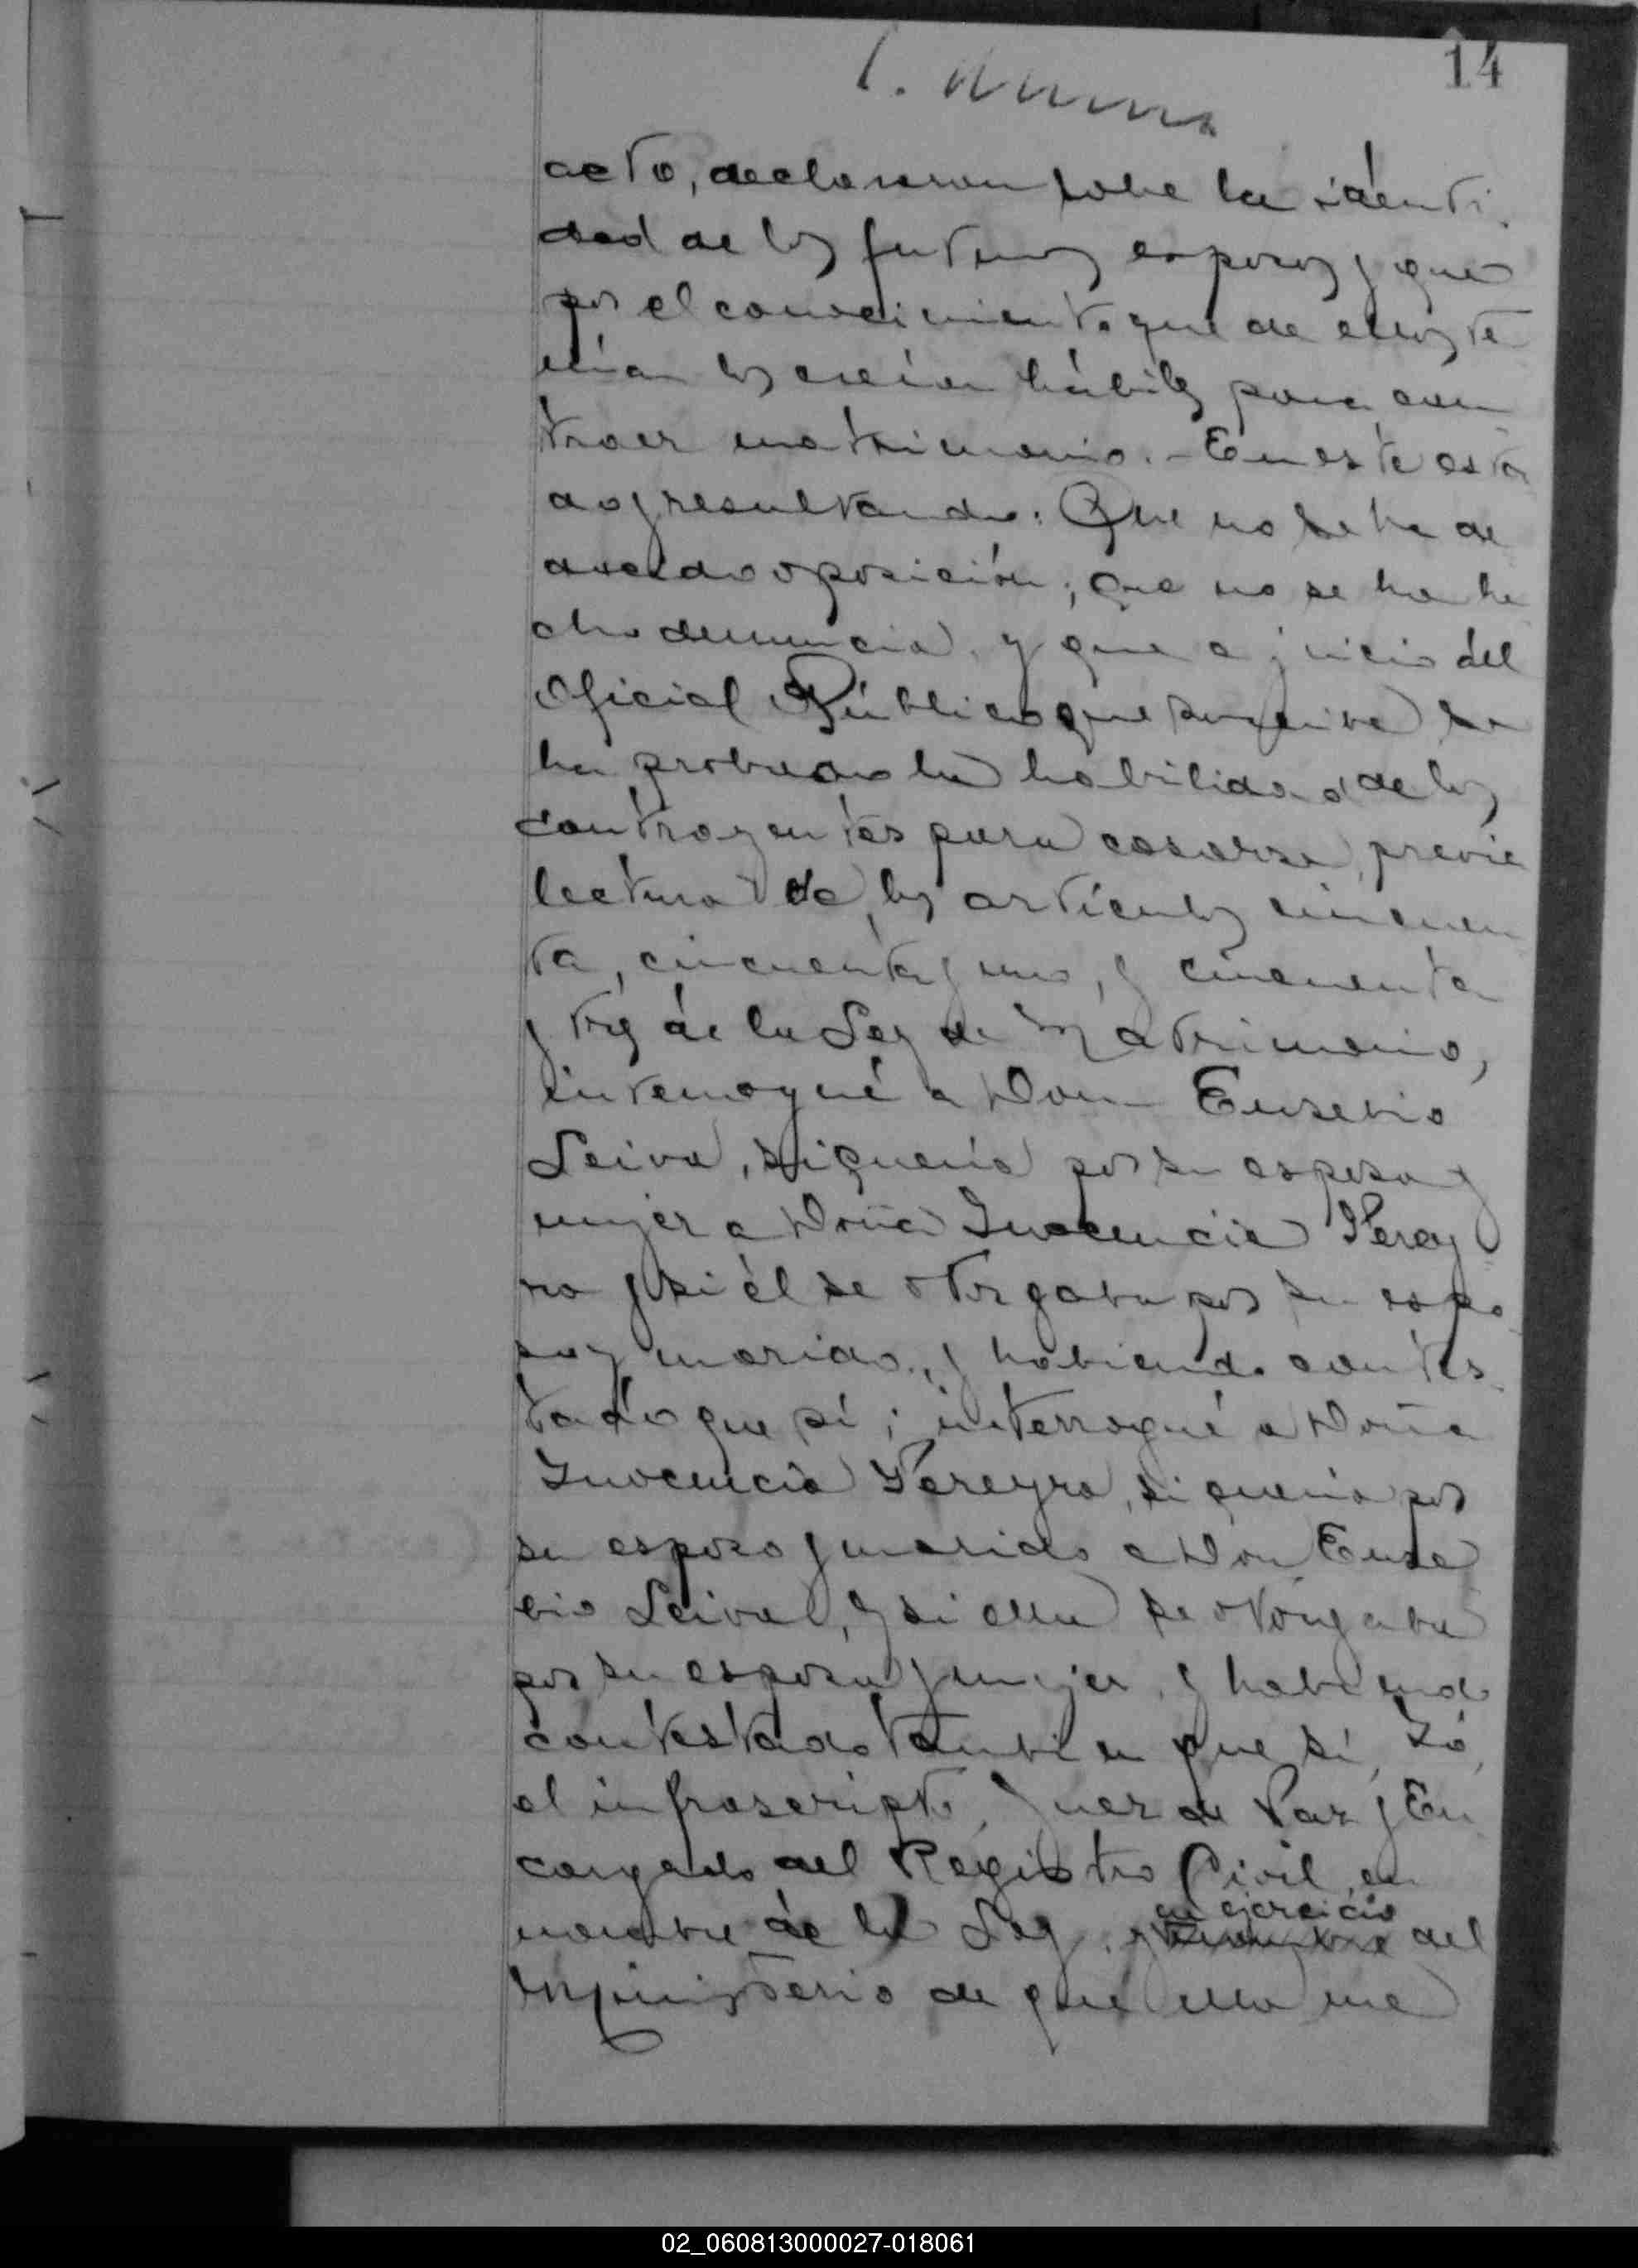 14
acto, declararon sobe la identi
dad de los futuros esposos y que
por el conocimiento que de ellos te
nían los creían hábiles para con
traer matrimonio. - En este esta
do y resultando: Que no se ha de
ducido oposición; que no se ha he
cho denuncia y que a juicio del
Oficial Público que suscribe se
ha probado la habilidad de los
contrayentes para casarse, previa
lectura de los artículos cincuen
ta, cincuenta y uno, y cincuenta
y tres de la Ley de Matrimonio,
interrogué a Don Eusebio
Leiva, si quería por su esposa y
mujer a Doña Inocencia Perey
ra y si él se otorgaba por su espo
so y marido, y habiendo contes
tado que sí; interrogué a Doña
Inocencia Pereyra, si quería por
su esposo y marido a Don Euse
bio Leiva, y si ella se otorgaba
por su esposa y mujer, y habiendo
contestado tambien que sí, Yó,
el infrascripto, Juez de Paz y En
cargado del Registro Civil, en
nombre de la Ley, y en ejercicio del
Ministerio de que ella me
02_060813000027-018061